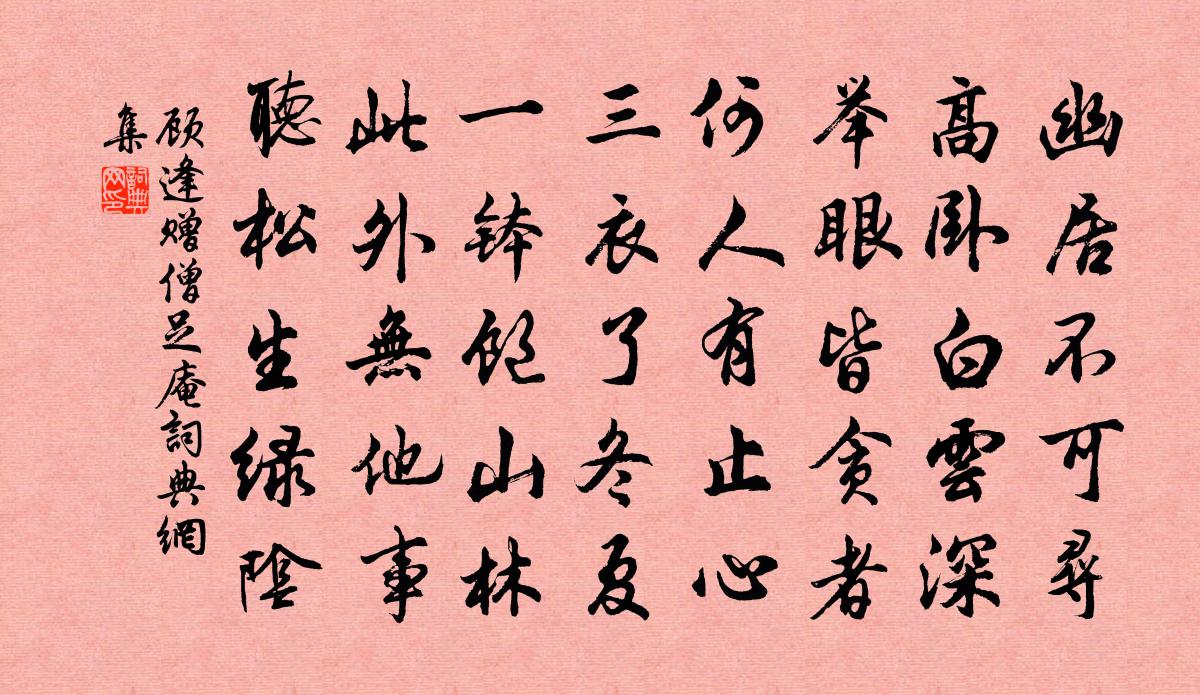 幽居不可尋
高卧白雲深
举眼皆贪者
何人有止心
三衣了冬夏
一钵饱山林
此外無他事
聽松生绿陰
顾逢赠僧足庵詞典網
集
詞典网印